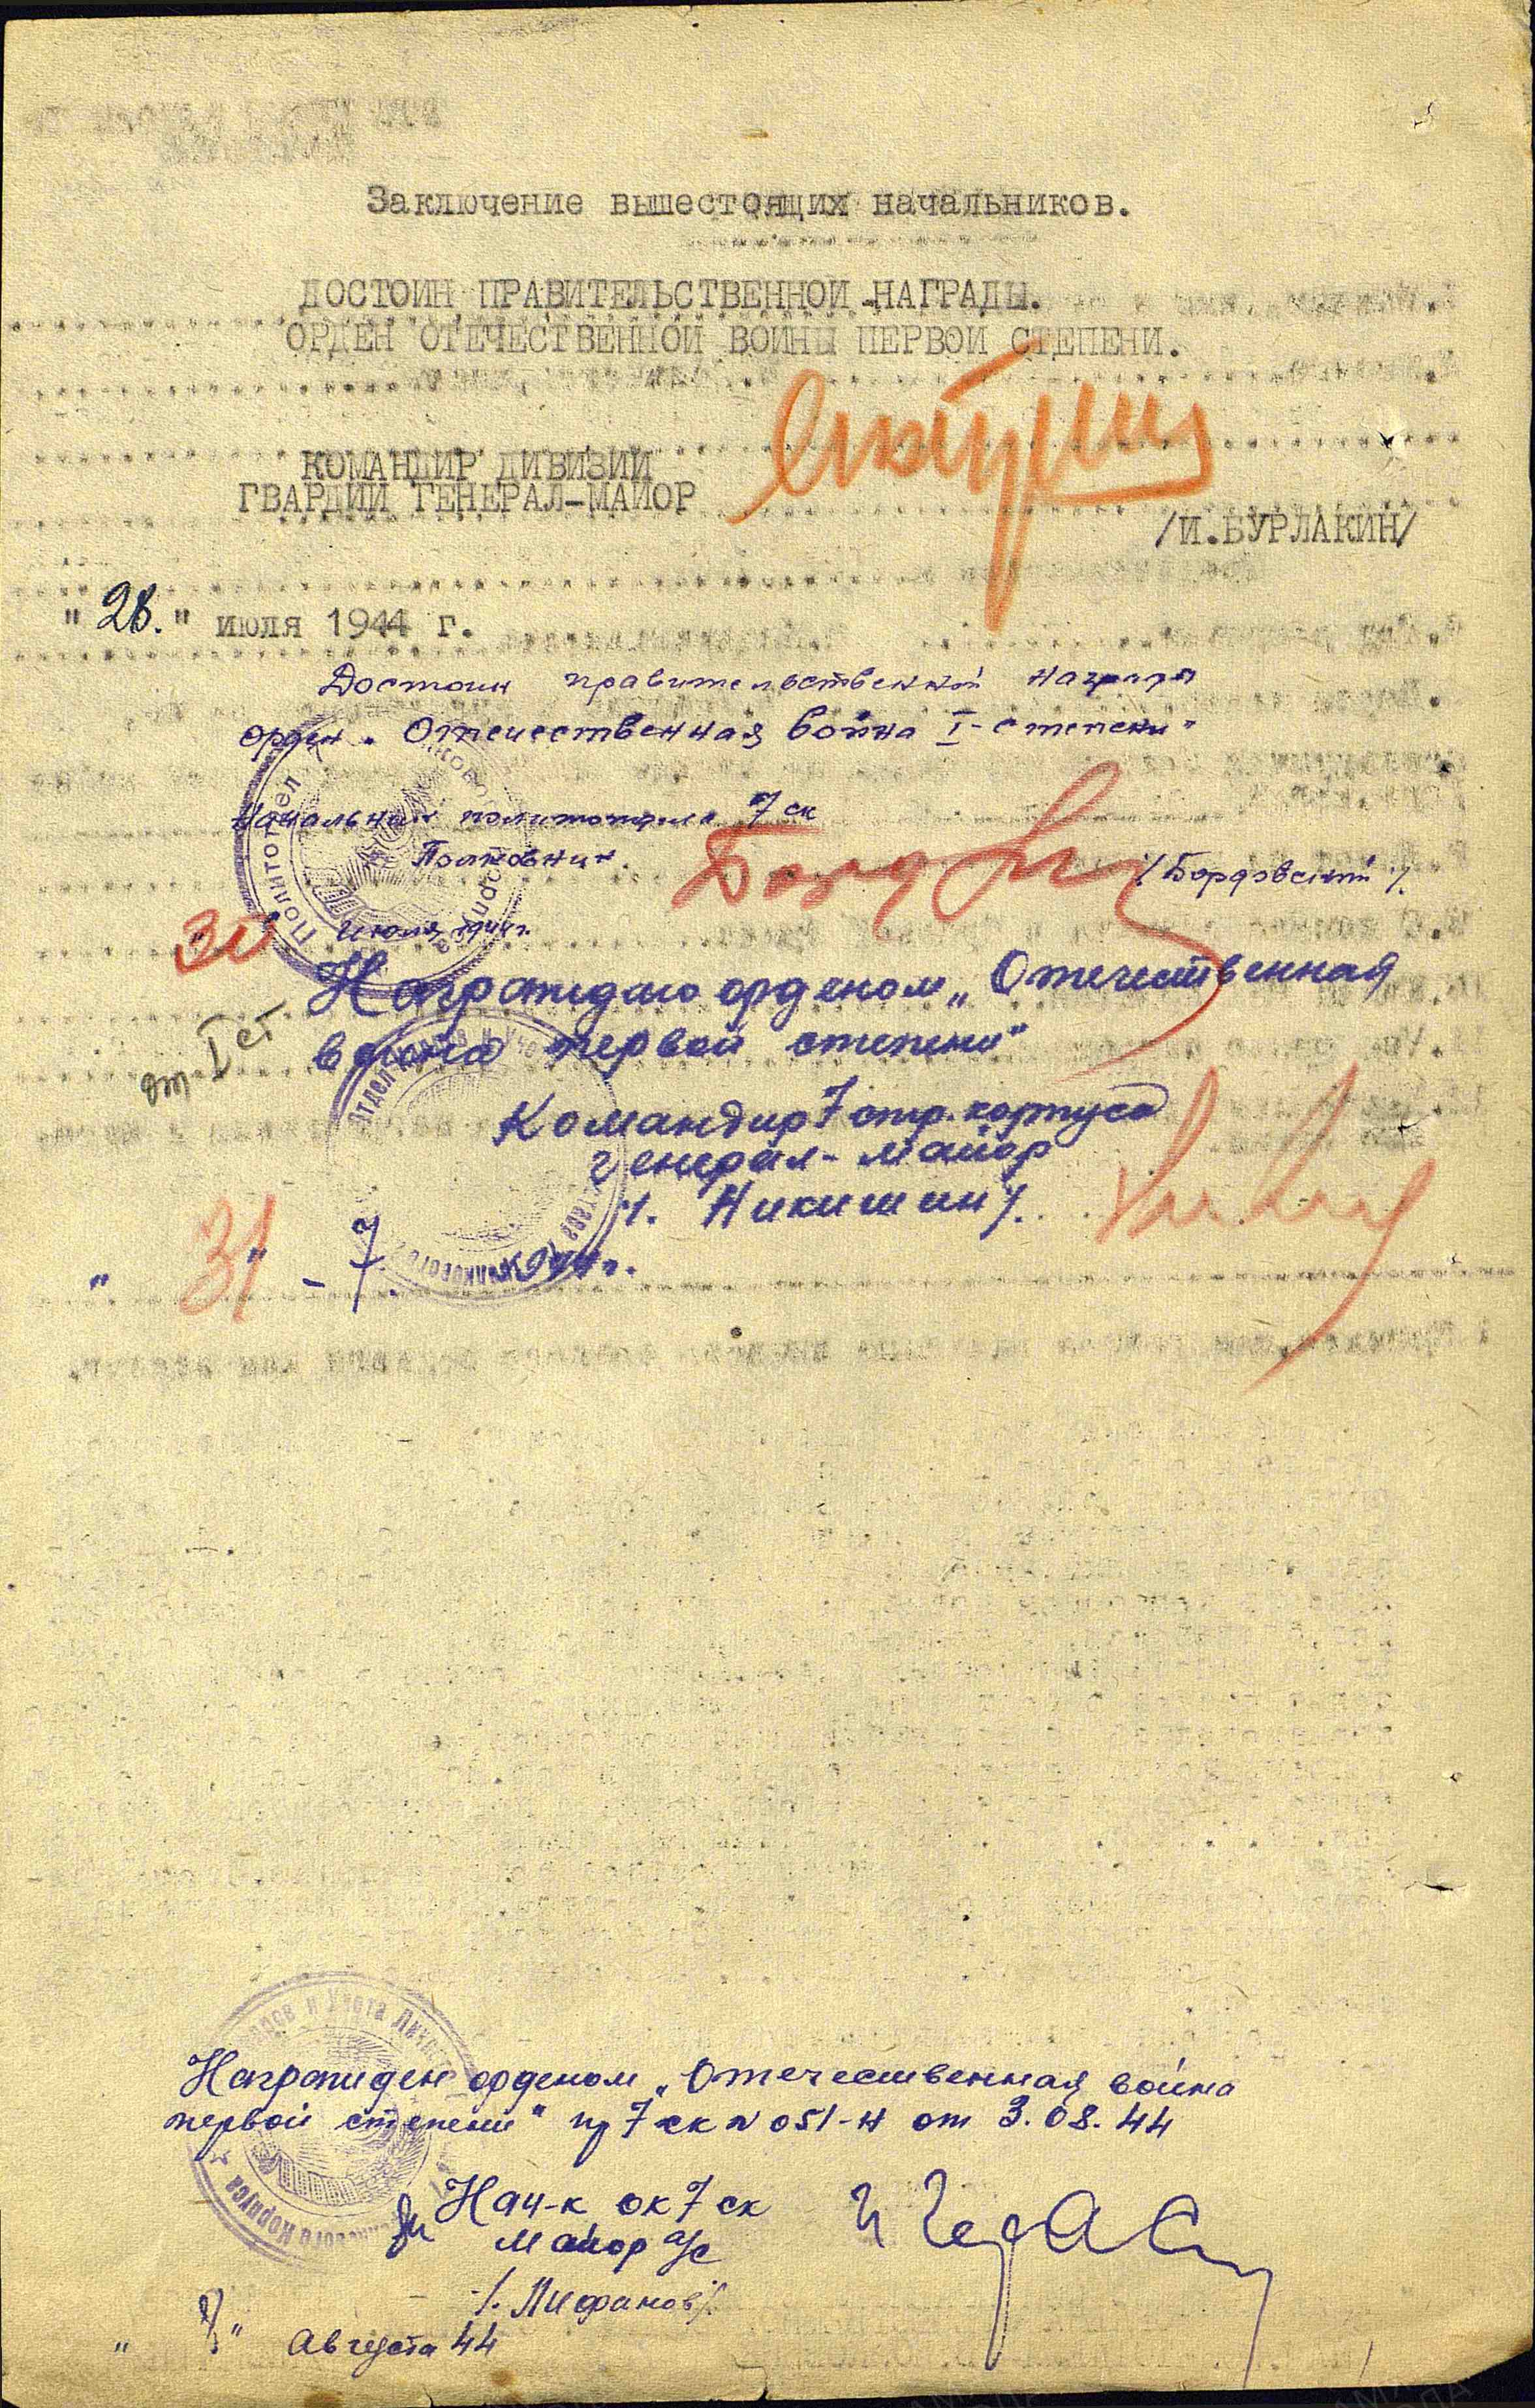 Заключение вышестоящих начальников.
ДОСТОИН ПРАВИТЕЛЬСТВЕННОЙ НАГРАДЫ.
ОРДЕН ОТЕЧЕСТВЕННОЙ ВОЙНЫ ПЕРВОЙ СТЕПЕНИ.
КОМАНДИР ДИВИЗИИ
ГВАРДИИ ГЕНЕРАЛ-МАЙОР
/И.БУРЛАКИН/
"28." июля 1944 г.
Достоин правительственной награды
орден "Отечественная война I-степени"
Начальник политотдела 7 ск
Полковник /Бордовский/.
30 июля 1944г.
Награждаю орденом "Отечественная
война первой степени"
от I ст
Командир 7 стр. корпуса
генерал-майор
/. Никишин/.
"31" - 7. 1944г.
Политотдел
Награжден орденом "Отечественная война
первой степени" пр 7 ск № 051-н от 3.08.44
Нач-к ок 7 ск
майор а/с
/. Лифанов/.
"3" Августа 44